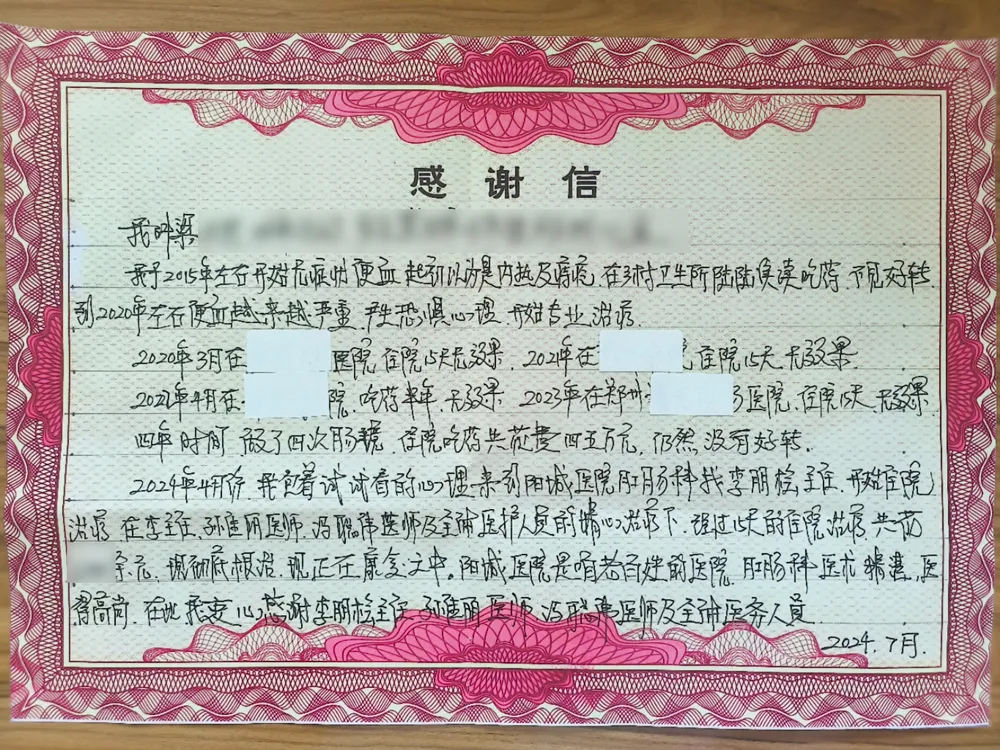 感谢信
我叫梁
我于2015年左右开始无症状便血 起初以为是内热及痔疮,在乡村卫生所陆陆续续吃药 不见好转
到2020年左右便血越来越严重,产生恐惧心理 开始专业治疗.
2020年3月在 医院 住院15天无效果. 2021年在 住院15天 无效果.
2022年4月在 院,吃药半年,无效果 2023年在郑州 医院.住院15天.无效果
四年时间 做了四次肠镜 住院吃药共花费四五万元,仍然没有好转.
2024年4月份,我抱着试试看的心理来到阳城医院肛肠科找李朋松主任.开始住院
治疗 在李主任 孙佳丽医师 冯聪伟医师及全部医护人员的精心治疗下.经过15天的住院治疗 共花
余元.现彻底根治.现正在康复之中。阳城医院是咱老百姓的医院 肛肠科医术精湛 医
得高尚.在此我衷心感谢李朋松主任 孙佳丽医师 冯聪伟医师及全部医务人员
2024.7月.